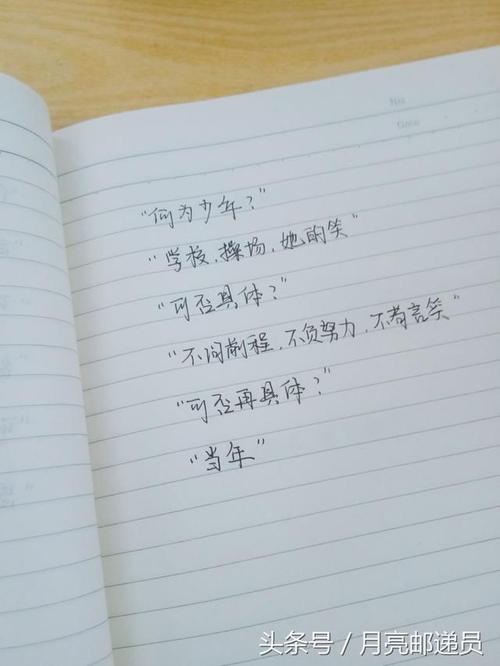 "何为少年？"
"学校，操场，她的笑"
"可否具体？"
"不问前程，不负努力，不苟言笑"
"可否再具体？"
"当年"
头条号 / 月亮邮递员